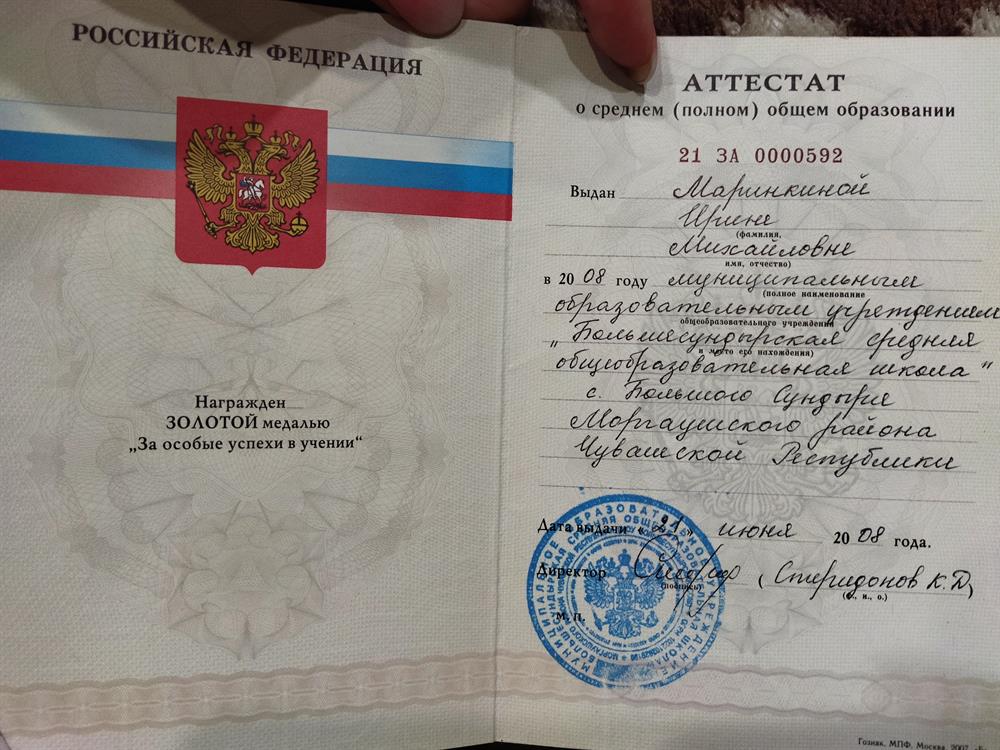 РОССИЙСКАЯ ФЕДЕРАЦИЯ
Награжден
ЗОЛОТОЙ медалью
„За особые успехи в учении“
АТТЕСТАТ
о среднем (полном) общем образовании
21 ЗА 0000592
Выдан Маринкиной
Ирине
(фамилия,
Михайловне
имя, отчество)
в 2008 году муниципальным
(полное наименование
образовательным учреждением
общеобразовательного учреждения
„Большесундырская средняя
и место его нахождения)
общеобразовательная школа“
с. Большого Сундыря
Моргаушского района
Чувашской Республики
Дата выдачи „21“ июня 2008 года.
Директор (Спиридонов К.Д)
(подпись) (ф., и., о.)
М. П.
МУНИЦИПАЛЬНОЕ ОБРАЗОВАТЕЛЬНОЕ УЧРЕЖДЕНИЕ
Гознак, МПФ, Москва, 2007,